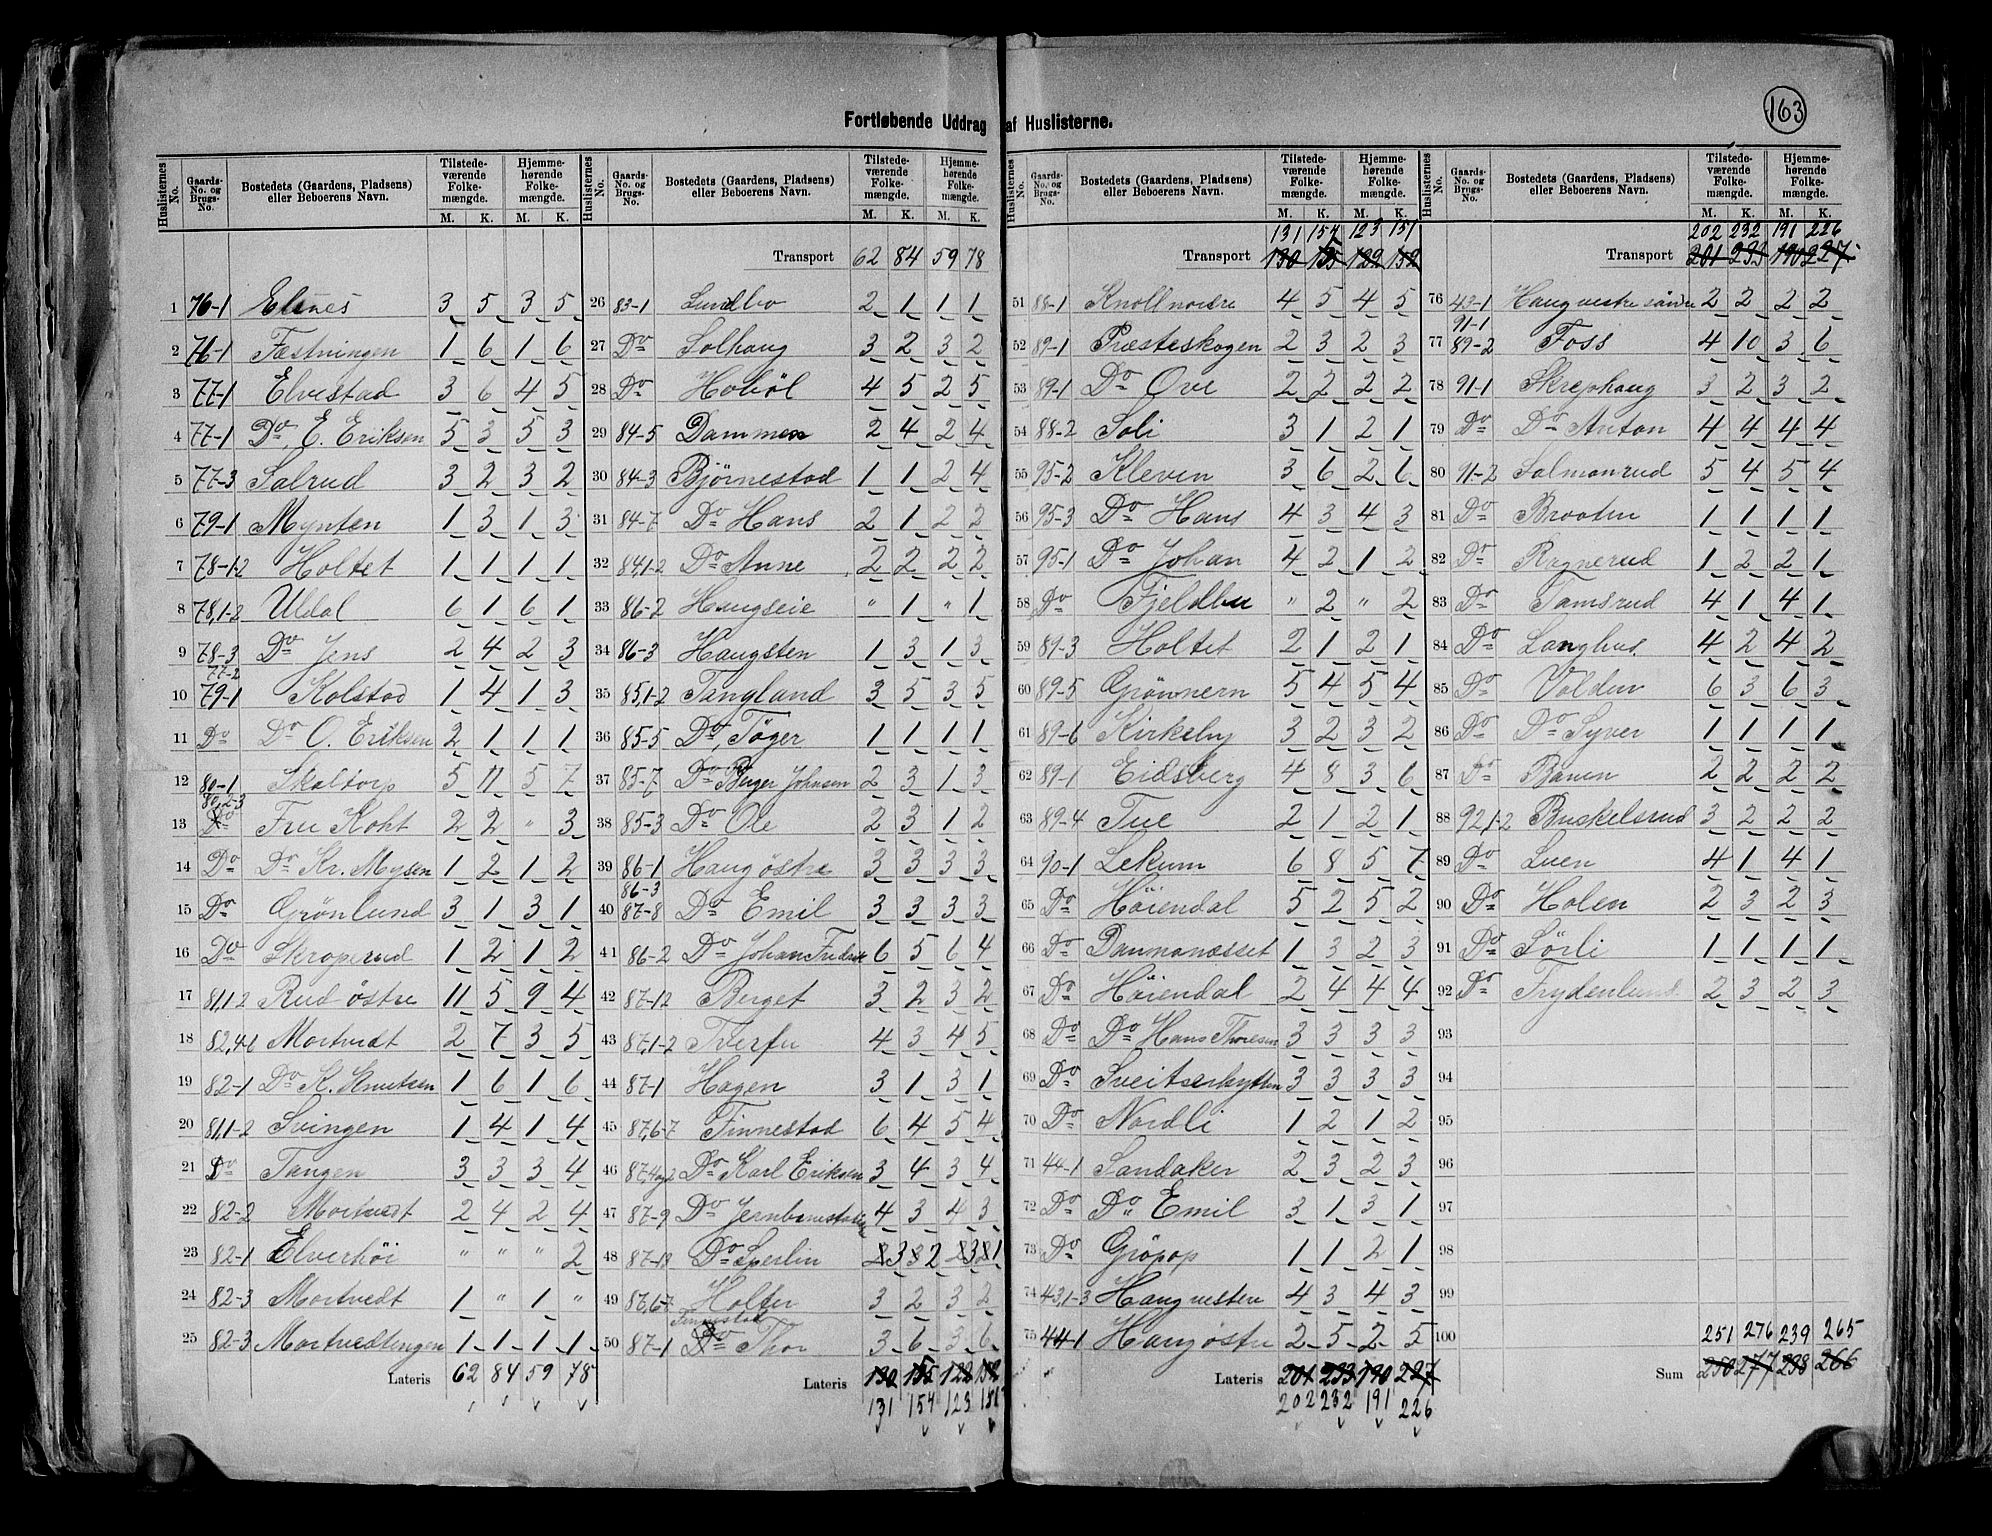 163
Fortløbende Uddrag af Huslisterne.
Huslisternes No. | Gaards-No. og Brugs-No. | Bostedets (Gaardens, Pladsens) eller Beboerens Navn. | Tilstedeværende Folkemængde. M. K. | Hjemmehørende Folkemængde. M. K.
1 76-1 Elsnes 3 5 3 5
2 76-1 Fæstningen 1 6 1 6
3 77-1 Elvestad 3 6 4 5
4 77-1 Do, E. Eriksen 5 3 5 3
5 77-3 Salrud 3 2 3 2
6 79-1 Mynten 1 3 1 3
7 78-1-2 Holtet 1 1 1 1
8 78,1-2 Uldal 6 1 6 1
9 78-3 Do Jens 2 4 2 3
10 77-2 79-1 Kolstad 1 4 1 3
11 Do Do O. Eriksen 2 1 1 1
12 80-1 Skaltorp 5 11 5 7
13 80,2-3 Do Fru Koht 2 2 " 3
14 Do Do Kr. Mysen 1 2 1 2
15 Do Grönlund 3 1 3 1
16 Do Skroperud 1 2 1 2
17 81,1-2 Rud østre 11 5 9 4
18 82,4-6 Mortvedt 2 7 3 5
19 82-1 Do K. Knutsen 1 6 1 6
20 81,1-2 Svingen 1 4 1 4
21 Do Tangen 3 3 3 4
22 82-2 Mortvedt 2 4 2 4
23 82-1 Elverhöi " " " 2
24 82-3 Mortvedt 1 " 1 "
25 82-3 Mortvedtengen 1 1 1 1
Lateris 62 84 59 78
Huslisternes No. | Gaards-No. og Brugs-No. | Bostedets (Gaardens, Pladsens) eller Beboerens Navn. | Tilstedeværende Folkemængde. M. K. | Hjemmehørende Folkemængde. M. K.
Transport 62 84 59 78
26 83-1 Lundbo 2 1 1 1
27 Do Solhaug 3 2 3 2
28 Do Hoböl 4 5 2 5
29 84-5 Dammen 2 4 2 4
30 84-3 Bjørnestad 1 1 2 4
31 84-7 Do Hans 2 1 2 2
32 84,1-2 Do Anne 2 2 2 2
33 86-2 Haugseie " 1 " 1
34 86-3 Haugsten 1 3 1 3
35 85,1-2 Tangland 3 5 3 5
36 85-5 Do, Töger 1 1 1 1
37 85-7 Do Birger Johnsen 2 3 1 3
38 85-3 Do Ole 2 3 1 2
39 86-1 Haug østre 3 3 3 3
40 86-3 87-8 Do Emil 3 3 3 3
41 86-2 Do Johan Fredrik 6 5 6 4
42 87-12 Berget 3 2 3 2
43 87,1-2 Tverfu 4 3 4 5
44 87-1 Hagen 3 1 3 1
45 87,6-7 Finnestad 6 4 5 4
46 Do Karl Eriksen 3 4 3 4
47 87-9 Do Jernbanestation 4 3 4 3
48 Do Sperlin 3 2 3 1
49 87,6-7 Holter 3 2 3 2
50 87-1 Finnestad Do Thor 3 6 3 6
Lateris 130 155 122 152
131 154 123 151
Huslisternes No. | Gaards-No. og Brugs-No. | Bostedets (Gaardens, Pladsens) eller Beboerens Navn. | Tilstedeværende Folkemængde. M. K. | Hjemmehørende Folkemængde. M. K.
131 154 123 151
Transport 130 155 122 152
51 88-1 Knoll nordre 4 5 4 5
52 89-1 Præsteskogen 2 3 2 3
53 89-1 Do Ove 2 2 2 2
54 88-2 Soli 3 1 2 1
55 95-2 Kleven 3 6 2 6
56 95-3 Do Hans 4 3 4 3
57 95-1 Do Johan 4 2 1 2
58 Do Fjeldbu " 2 " 2
59 89-3 Holtet 2 1 2 1
60 89-5 Grönnern 5 4 5 4
61 89-6 Kirkeby 3 2 3 2
62 89-1 Eidsberg 4 8 3 6
63 89-4 Tue 2 1 2 1
64 90-1 Lekum 6 8 5 7
65 Do Höiendal 5 2 5 2
66 Do Danmanæsset 1 3 2 3
67 Do Höiendal 2 4 4 4
68 Do Do Hans Thoresen 3 3 3 3
69 Do Sveitserhytten 3 3 3 3
70 Do Nordli 1 2 1 2
71 44-1 Sandaker 2 3 2 3
72 Do Do Emil 3 1 3 1
73 Do Gröpop 1 1 2 1
74 43,1-3 Haug vestre 4 3 4 3
75 44-1 Haug østre 2 5 2 5
Lateris 201 233 190 227
202 232 191 226
Huslisternes No. | Gaards-No. og Brugs-No. | Bostedets (Gaardens, Pladsens) eller Beboerens Navn. | Tilstedeværende Folkemængde. M. K. | Hjemmehørende Folkemængde. M. K.
202 232 191 226
Transport 201 233 190 227
76 43-1 Haug vestre söndre 2 2 2 2
77 91-1 89-2 Foss 4 10 3 6
78 91-1 Skrephaug 3 2 3 2
79 Do Do Anton 4 4 4 4
80 91-2 Salmonrud 5 4 5 4
81 Do Brooten 1 1 1 1
82 Do Ragnerud 1 2 2 1
83 Do Tamsrud 4 1 4 1
84 Do Langhus 4 2 4 2
85 Do Volden 6 3 6 3
86 Do Do Syver 1 1 1 1
87 Do Banen 2 2 2 2
88 92,1-2 Buskelsrud 3 2 2 2
89 Do Luen 4 1 4 1
90 Do Holen 2 3 2 3
91 Do Sörli 1 1 1 1
92 Do Frydenlund 2 3 2 3
93
94
95
96
97
98
99
100
251 276 239 265
Sum 250 277 238 266